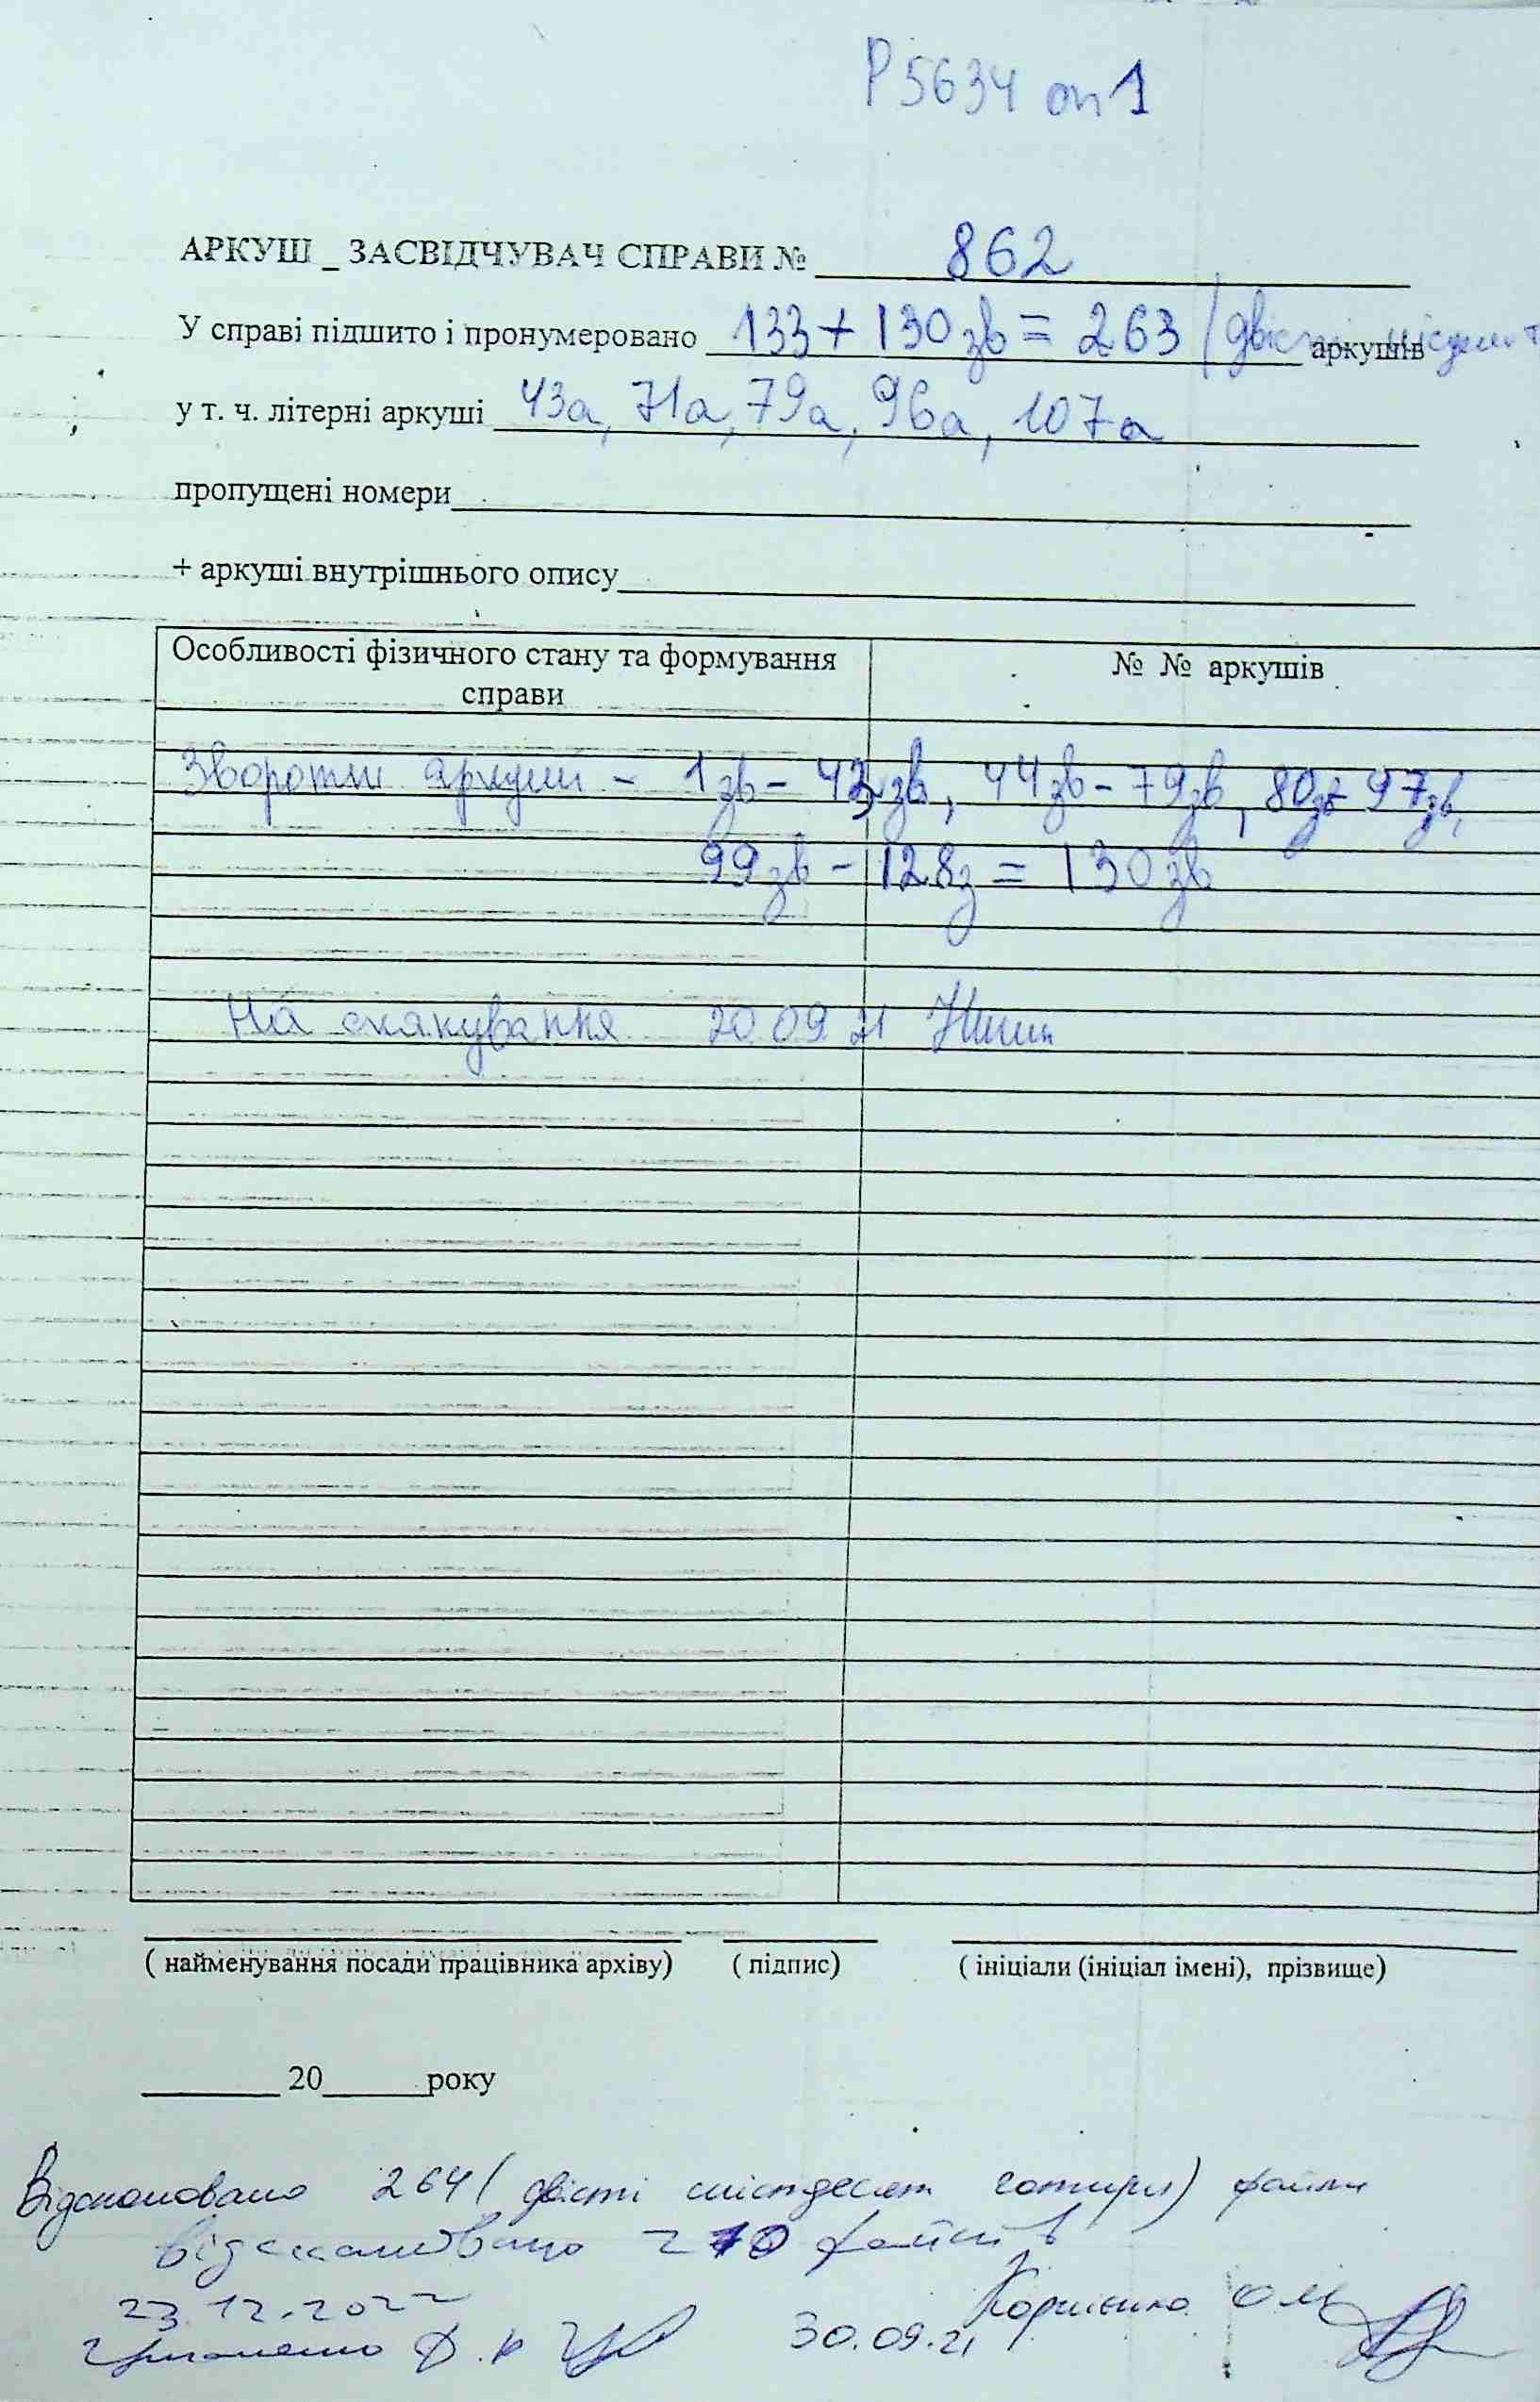 Р5634 оп 1
АРКУШ _ ЗАСВІДЧУВАЧ СПРАВИ № 862
У справі підшито і пронумеровано 133 + 130 зв = 263 / двісті аркушів
у т. ч. літерні аркуші 43а, 71а, 79а, 96а, 107а
пропущені номери
+ аркуші внутрішнього опису
Особливості фізичного стану та формування справи
№ № аркушів
Зворотні аркуші – 1зв – 43зв, 44зв – 79зв, 80зв – 97зв,
99зв – 128з = 130 зв
На сканування 20.09.21
( найменування посади працівника архіву) ( підпис) ( ініціали (ініціал імені), прізвище)
20 року
Відскановано 264 ( двісті шістдесят чотири) файли
відскановано 270 файлів
23.12.2022
30.09.21